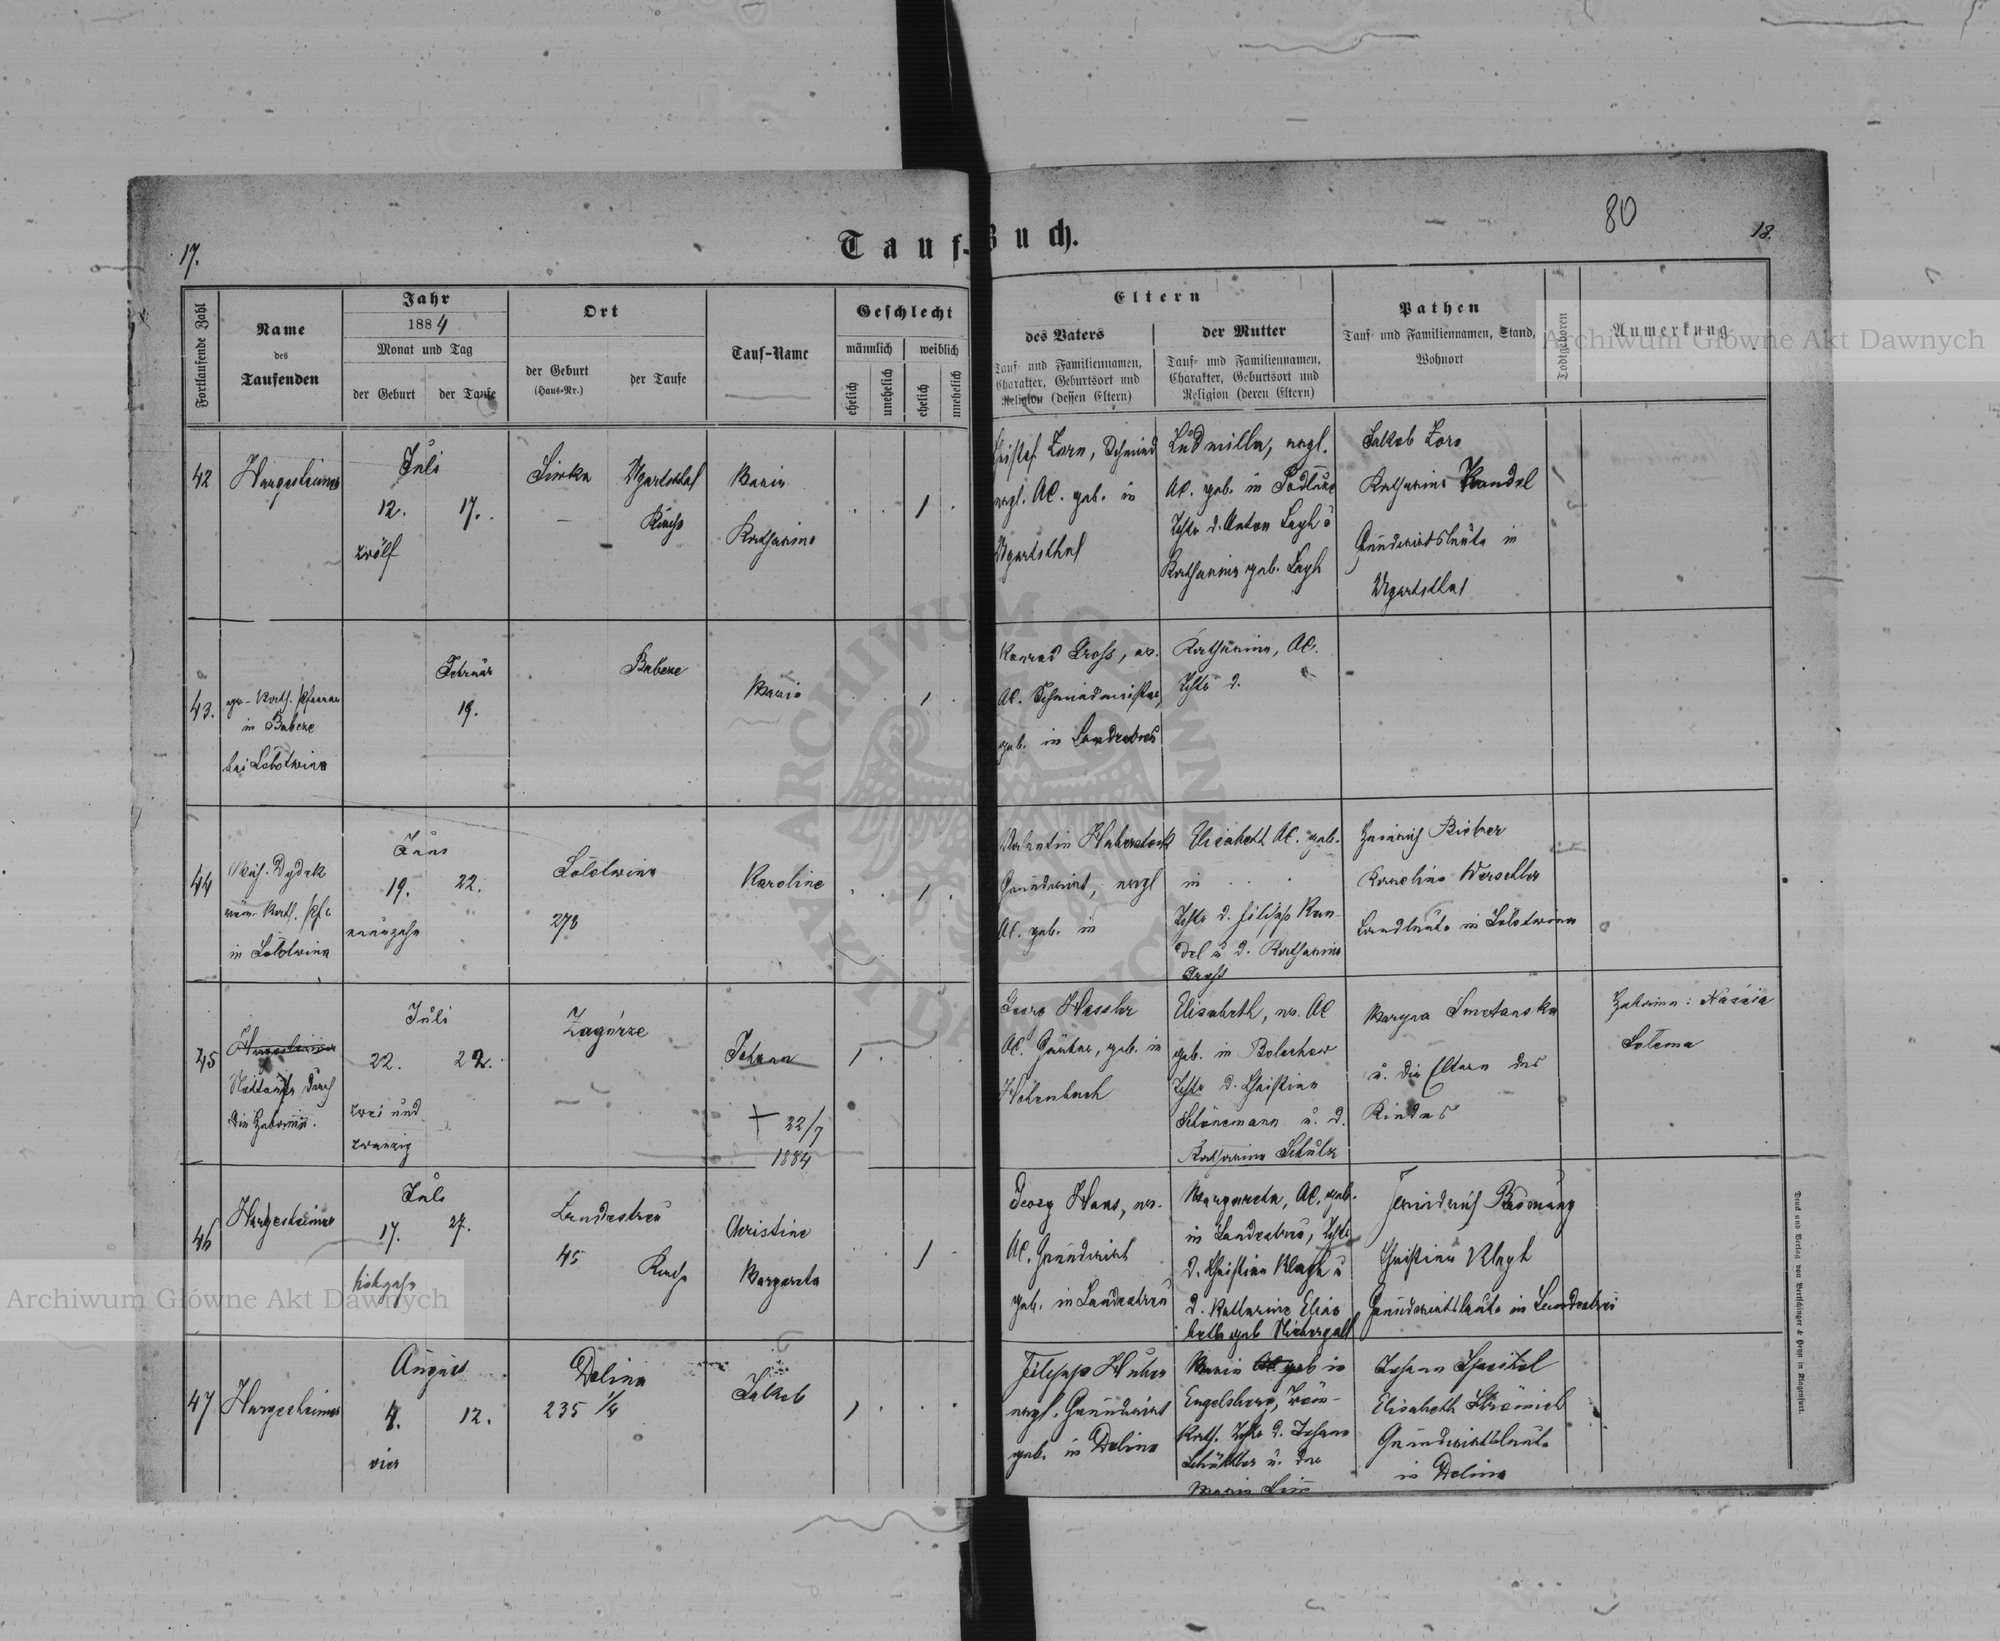 80
17.
Tauf-Buch.
18.
Fortlaufende Zahl
Name
des
Taufenden
Jahr
1884
Monat und Tag
der Geburt
der Taufe
Ort
der Geburt
(Haus-Nr.)
der Taufe
Tauf-Name
Geschlecht
männlich
weiblich
ehelich
unehelich
ehelich
unehelich
Eltern
des Vaters
Tauf- und Familiennamen,
Charakter, Geburtsort und
Religion (dessen Eltern)
der Mutter
Tauf- und Familiennamen,
Charakter, Geburtsort und
Religion (deren Eltern)
Pathen
Tauf- und Familiennamen, Stand,
Wohnort
Todtgeboren
Anmerkung
42
Hargesheimer
Juli
12.
17.
zwölf
Ugartsthal
Kirche
Maria
Katharina
1
Schmied
evgl. AC. geb. in
Ugartsthal
Ludmilla, evgl.
AC. geb. in
Tchtr d. Anton
Katharina geb.
Jakob
Katharina Kandel
Grundwirtsleute in
Ugartsthal
43.
gr. Kath. Pfarrer
in Babcze
bei Solotwina
Februar
19.
Babcze
Maria
1
Konrad Gross, ev.
AC. Schmiedmeister,
geb. in Landestreu
Katharina, AC.
Tchtr d.
44
Dydek
röm. Kath. Pfr
in Solotwina
Juni
19.
22.
neunzehn
Solotwina
278
Karoline
1
Valentin Haberstock
Grundwirt, evgl
AC. geb. in
Elisabeth AC. geb.
in
Tchtr d. Filipp Kan-
del u. d. Katharina
Gross
Heinrich Bieber
Karoline
Landleute in Solotwina
45
Hargesheimer
Nottaufe durch
die Hebamme.
Juli
22.
22.
zwei und
zwanzig
Zagórze
Johann
† 22/7
1884
1
Georg Hessler
AC. geb. in
Elisabeth, ev. AC
geb. in Bolechow
Tchtr d. Christian
Schönemann u. d.
Katharina Schulz
Maryna Smetanska
u. die Eltern des
Kindes
Hebamme: Naścia
Solema
46
Hargesheimer
Juli
17.
27.
siebzehn
Landestreu
45
Kirche
Christine
Margareta
1
Georg Haas, ev.
AC. Grundwirt
geb. in Landestreu
Margareta, AC. geb.
in Landestreu, Tchtr
d. Christian Klagh u
d. Katharina Elisa
beth geb.
Christina Klagh
Grundwirtsleute in Landestreu
47
Hargesheimer
August
4.
12.
vier
Dolina
235 1/4
Jakob
1
Filipp Huber
evgl. Grundwirt
geb. in Dolina
Maria AC. geb in
Engelsberg, röm-
Kath. Tchtr d. Johann
u. der
Maria
Johann
Elisabeth
Grundwirtsleute
in Dolina
Druck und Verlag von Bertschinger & Heyn in Klagenfurt.
Archiwum Główne Akt Dawnych
Archiwum Główne Akt Dawnych
ARCHIWUM GŁÓWNE AKT DAWNYCH